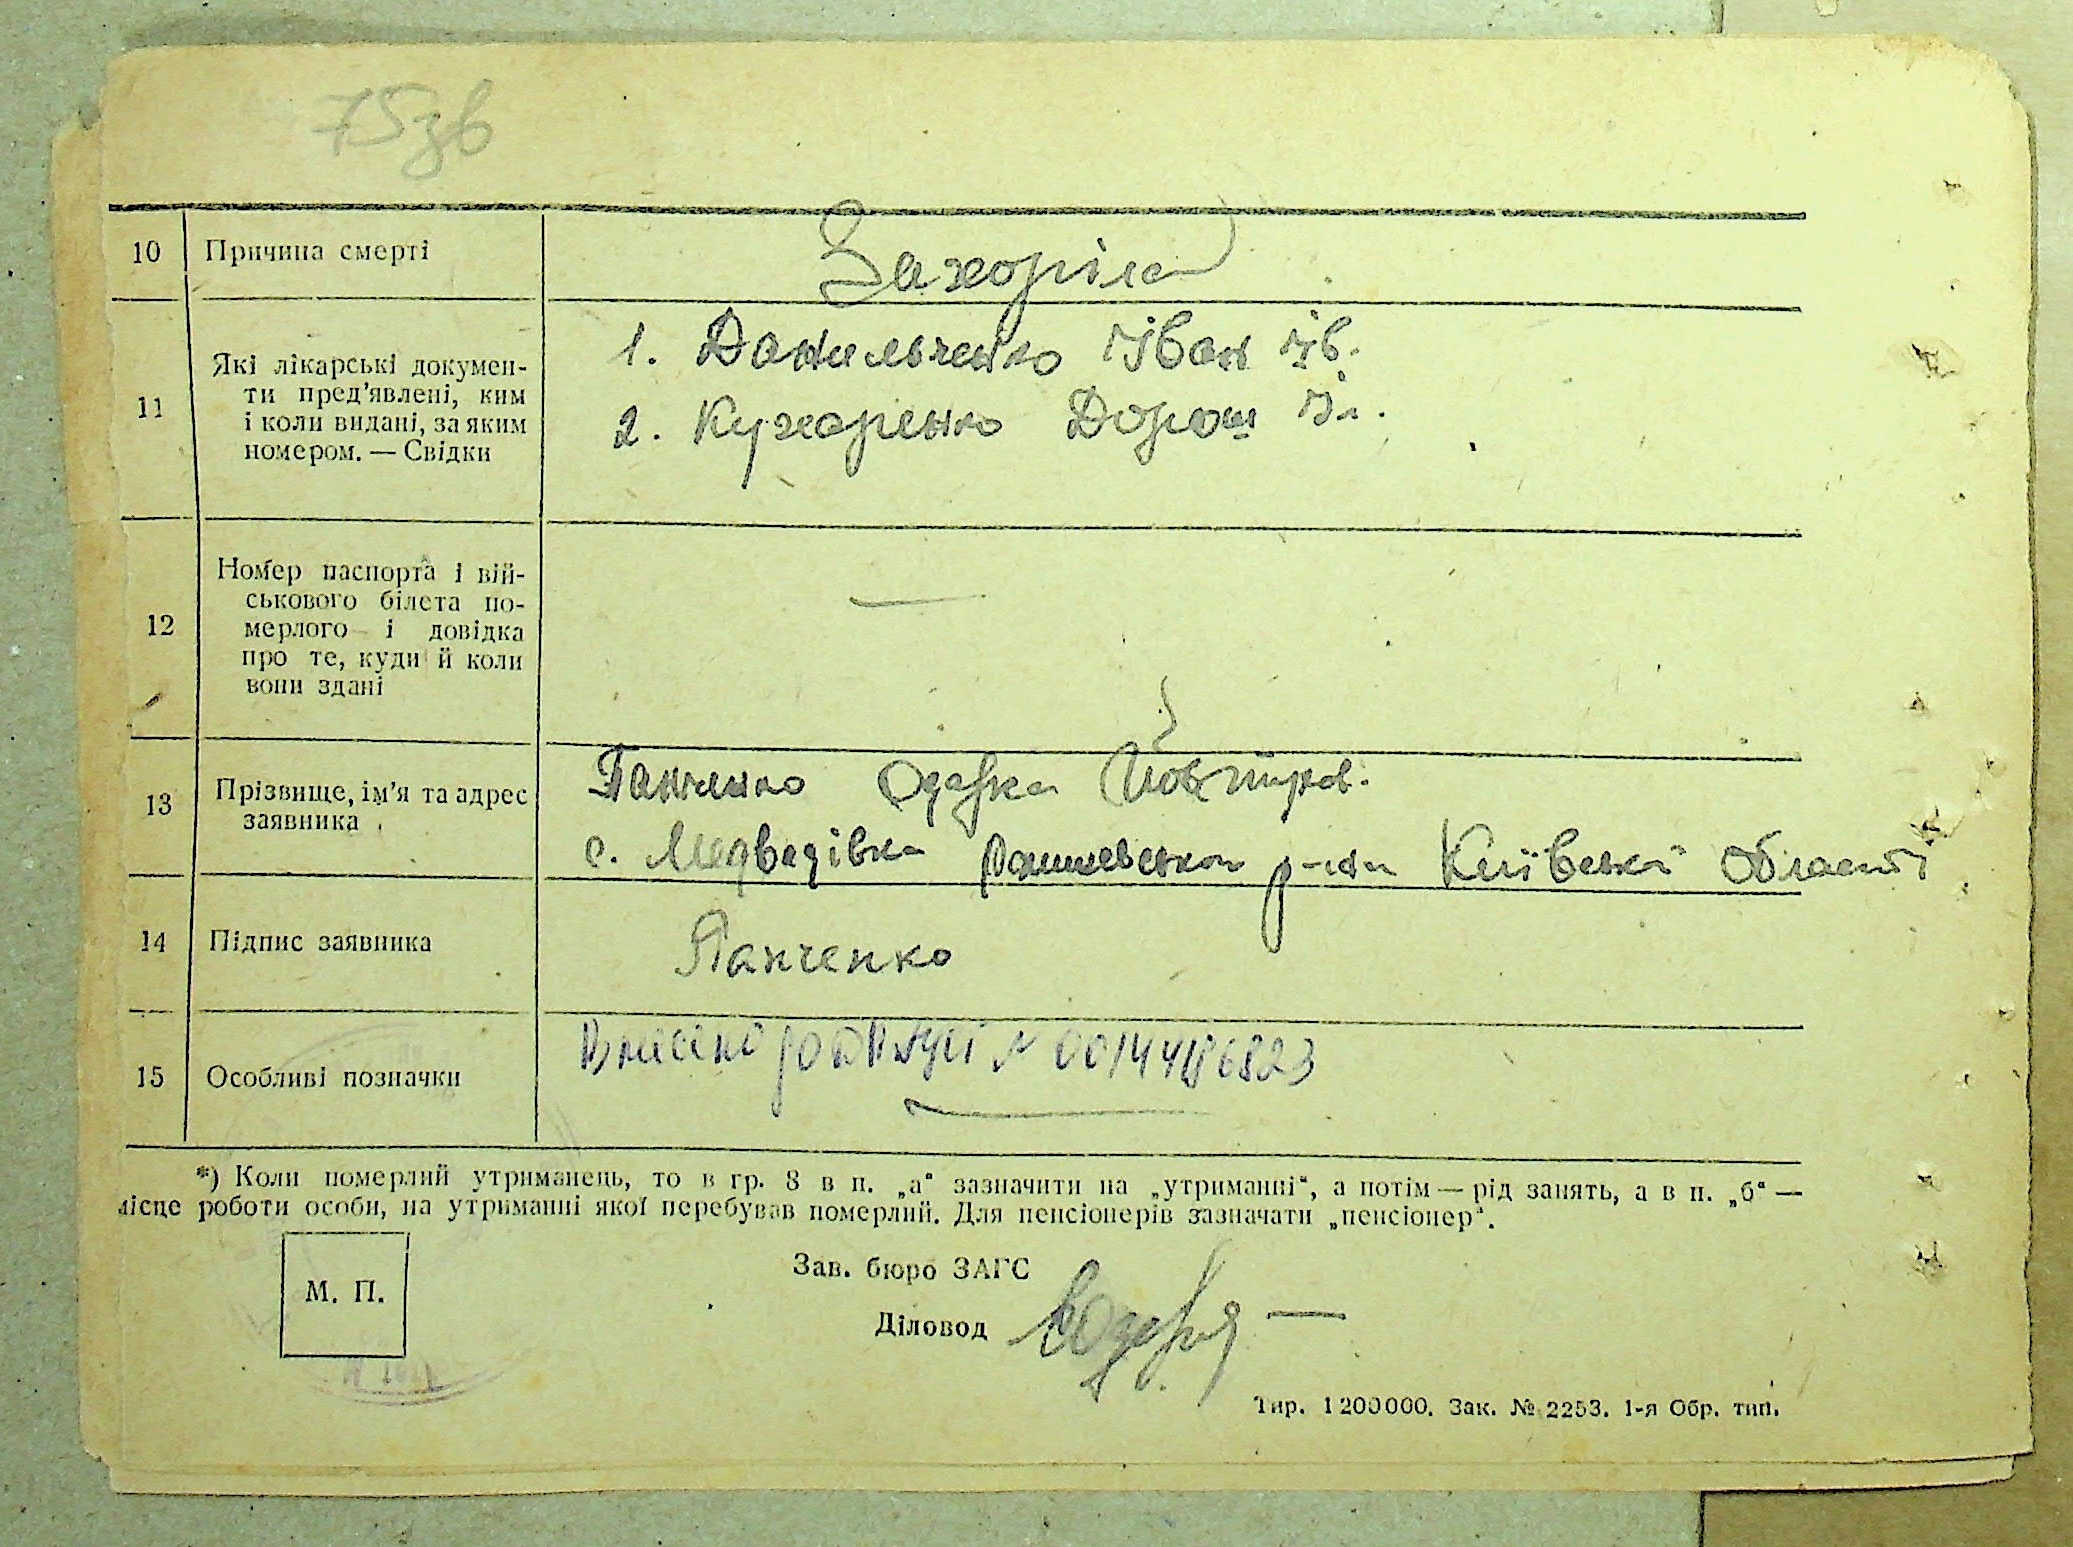 75зв
10 Причина смерті Захоріла
11 Які лікарські докумен-
ти пред'явлені, ким
і коли видані, за яким
номером. — Свідки
1. Данильченко Іван Ів.
2. Кухаренко Дорош Іл.
12 Номер паспорта і вій-
ськового білета по-
мерлого і довідка
про те, куди й коли
вони здані
—
13 Прізвище, ім'я та адрес
заявника
Панченко Одарка
с. Медведівка р-на Київської області
14 Підпис заявника Панченко
15 Особливі позначки Внесено до ДРАЦСГ № 00144186823
*) Коли померлий утриманець, то в гр. 8 в п. „а“ зазначити на „утриманні“, а потім — рід занять, а в п. „б“ —
місце роботи особи, на утриманні якої перебував померлий. Для пенсіонерів зазначати „пенсіонер“.
М. П.
Зав. бюро ЗАГС
Діловод
Тир. 1200000. Зак. № 2253. 1-я Обр. тип.